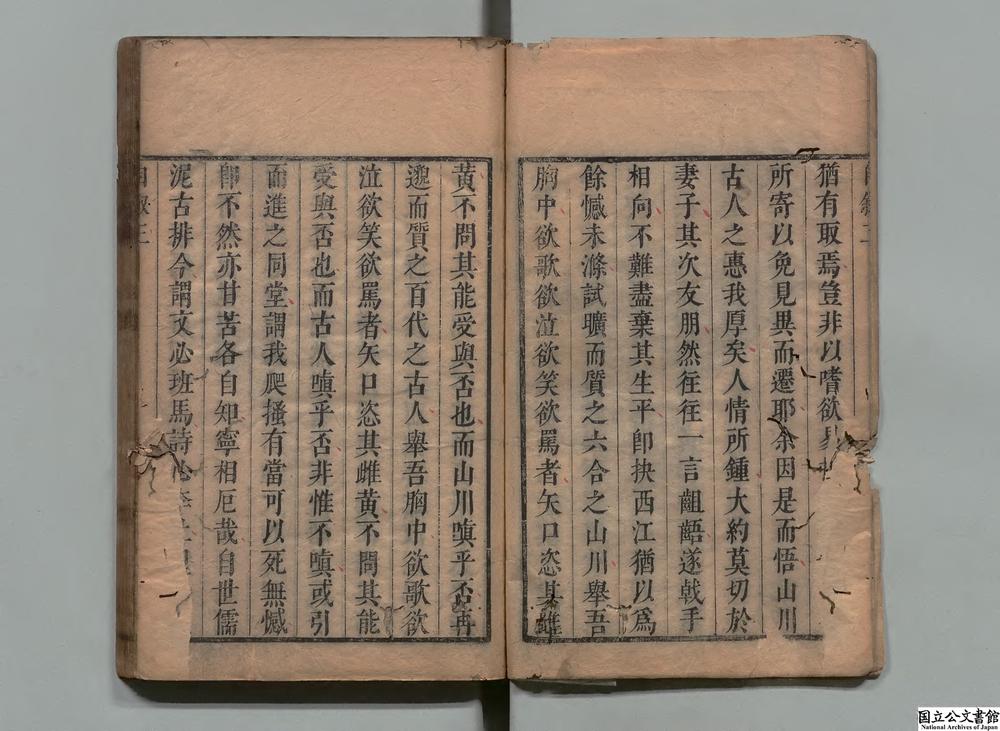 自敘二
猶有取焉豈非以嗜欲
所寄以免見異而遷耶余因是而悟山川
古人之惠我厚矣人情所鍾大約莫切於
妻子其次友朋然往往一言齟齬遂戟手
相向不難盡棄其生平卽抉西江猶以爲
餘憾未滌試曠而質之六合之山川舉吾
胸中欲歌欲泣欲笑欲罵者矢口恣其雌
黃不問其能受與否也而山川嗔乎否再
邈而質之百代之古人舉吾胸中欲歌欲
泣欲笑欲罵者矢口恣其雌黃不問其能
受與否也而古人嗔乎否非惟不嗔或引
而進之同堂謂我爬搔有當可以死無憾
卽不然亦甘苦各自知寧相厄哉自世儒
泥古排今謂文必班馬詩必李
自敘三
国立公文書館
National Archives of Japan